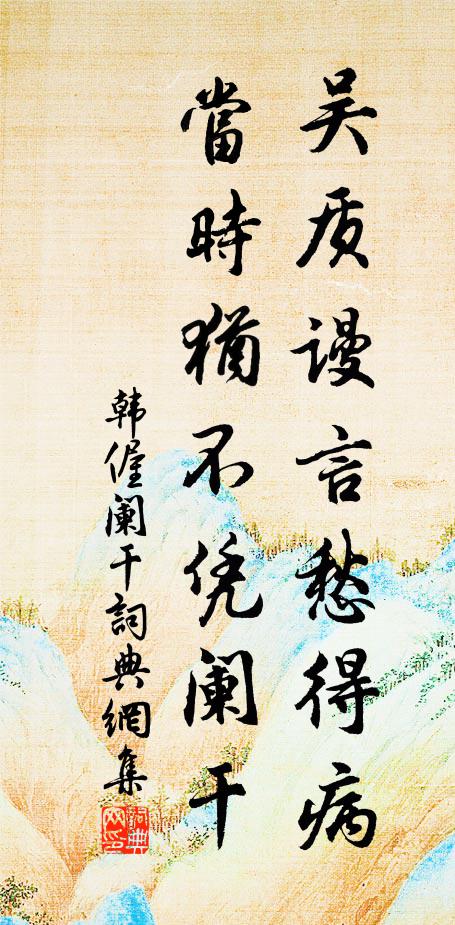 吴质谩言愁得病
當時猶不凭阑干
韩偓阑干詞典網集
詞典网印